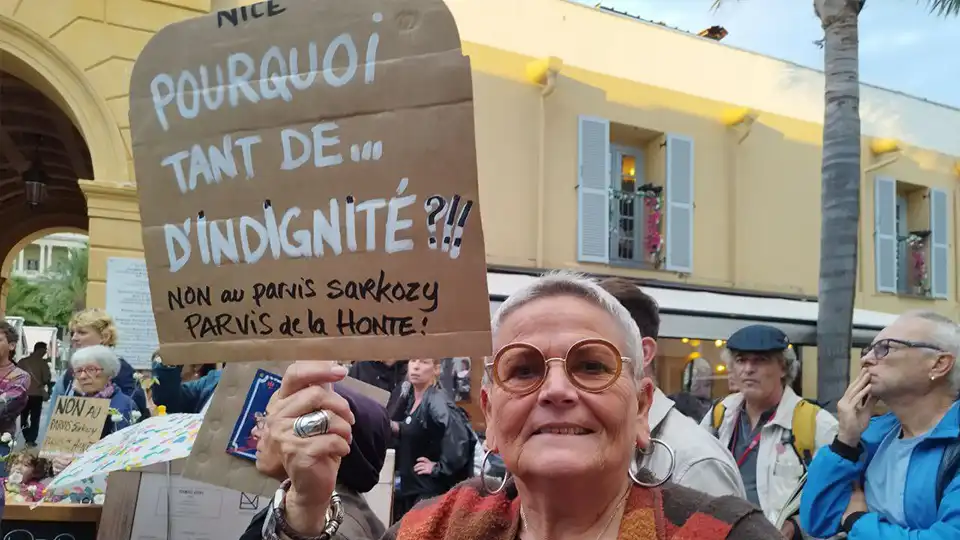 NICE
POURQUOI
TANT DE...
D'INDIGNITÉ ?!!
NON au parvis sarkozy
PARVIS de la HONTE!
NON au
PARVIS Sarkozy